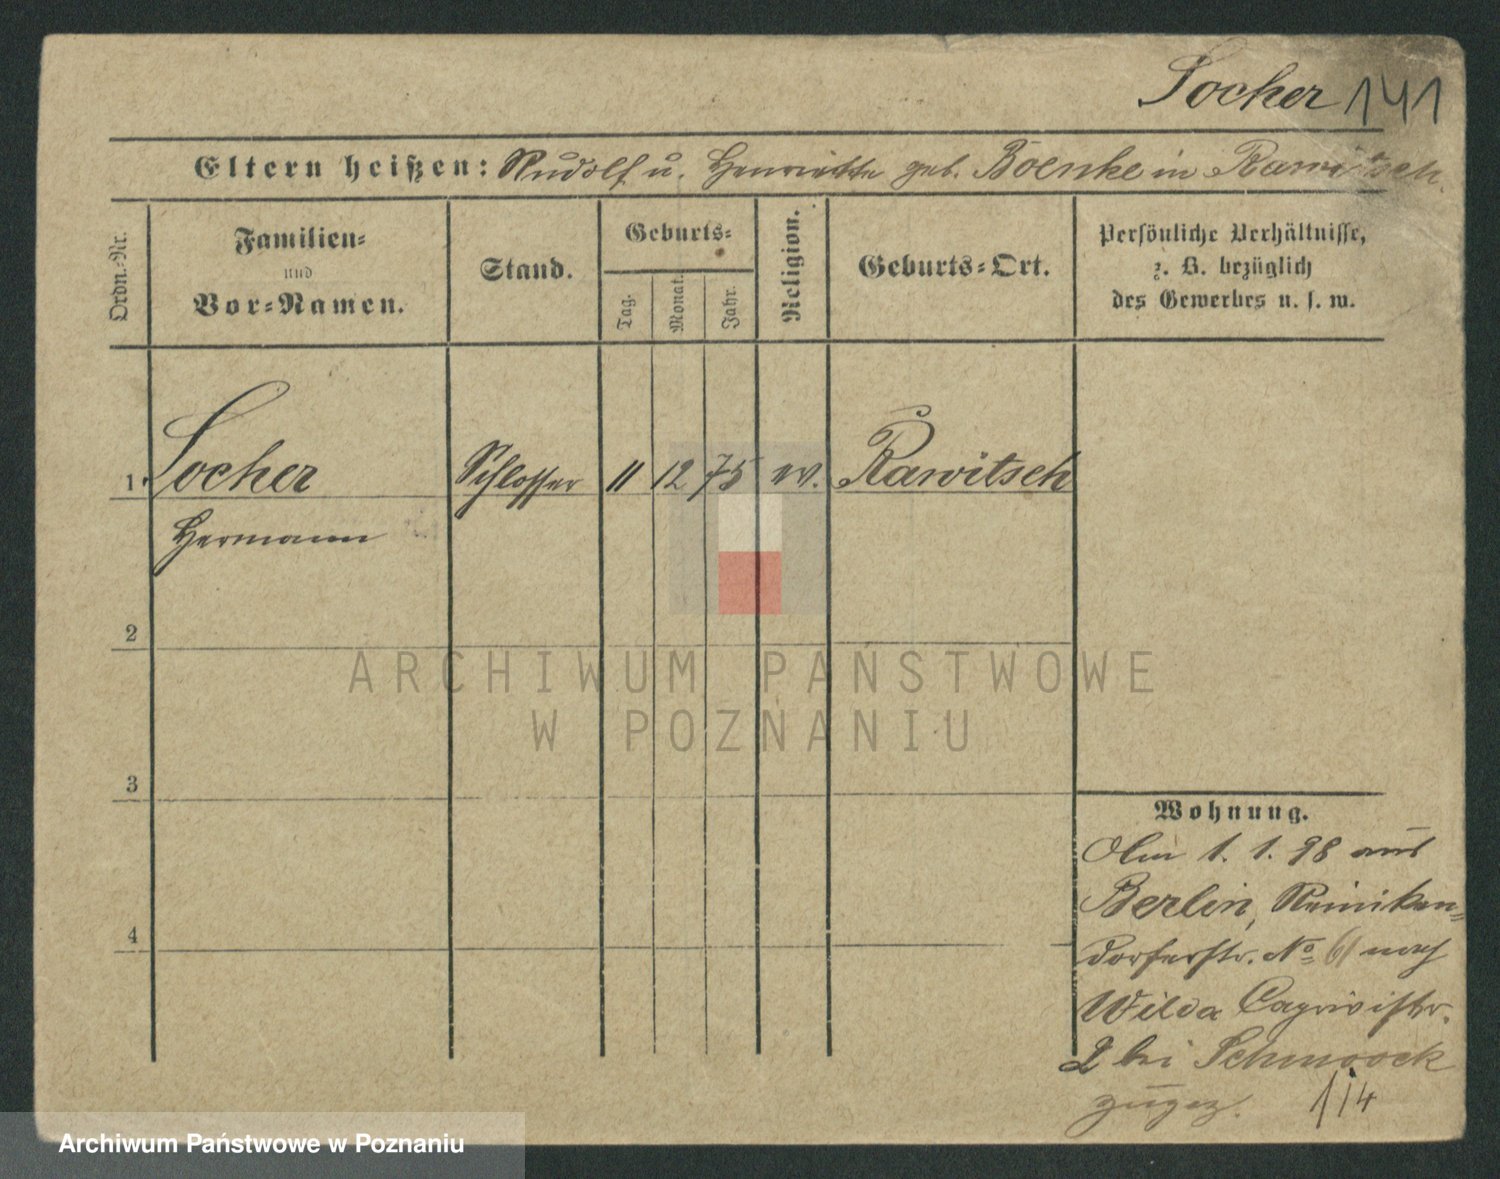 Locher 141
Eltern heißen: Rudolf u. Henriette geb. Boenke in Rawitsch.
Ordn.-Nr.
Familien-
und
Vor-Namen.
Stand.
Geburts-
Tag.
Monat.
Jahr.
Religion.
Geburts-Ort.
Persönliche Verhältnisse,
z. B. bezüglich
des Gewerbes u. s. w.
1. Locher Schlosser 11 12 75 ev. Rawitsch
Hermann
2
3
4
Wohnung.
Am 1. 1. 98 aus
Berlin, Reiniken-
dorferstr. No 61 nach
Wilda Caprivistr.
2 bei Schmoock
zugez. 1/4
ARCHIWUM PAŃSTWOWE
W POZNANIU
Archiwum Państwowe w Poznaniu